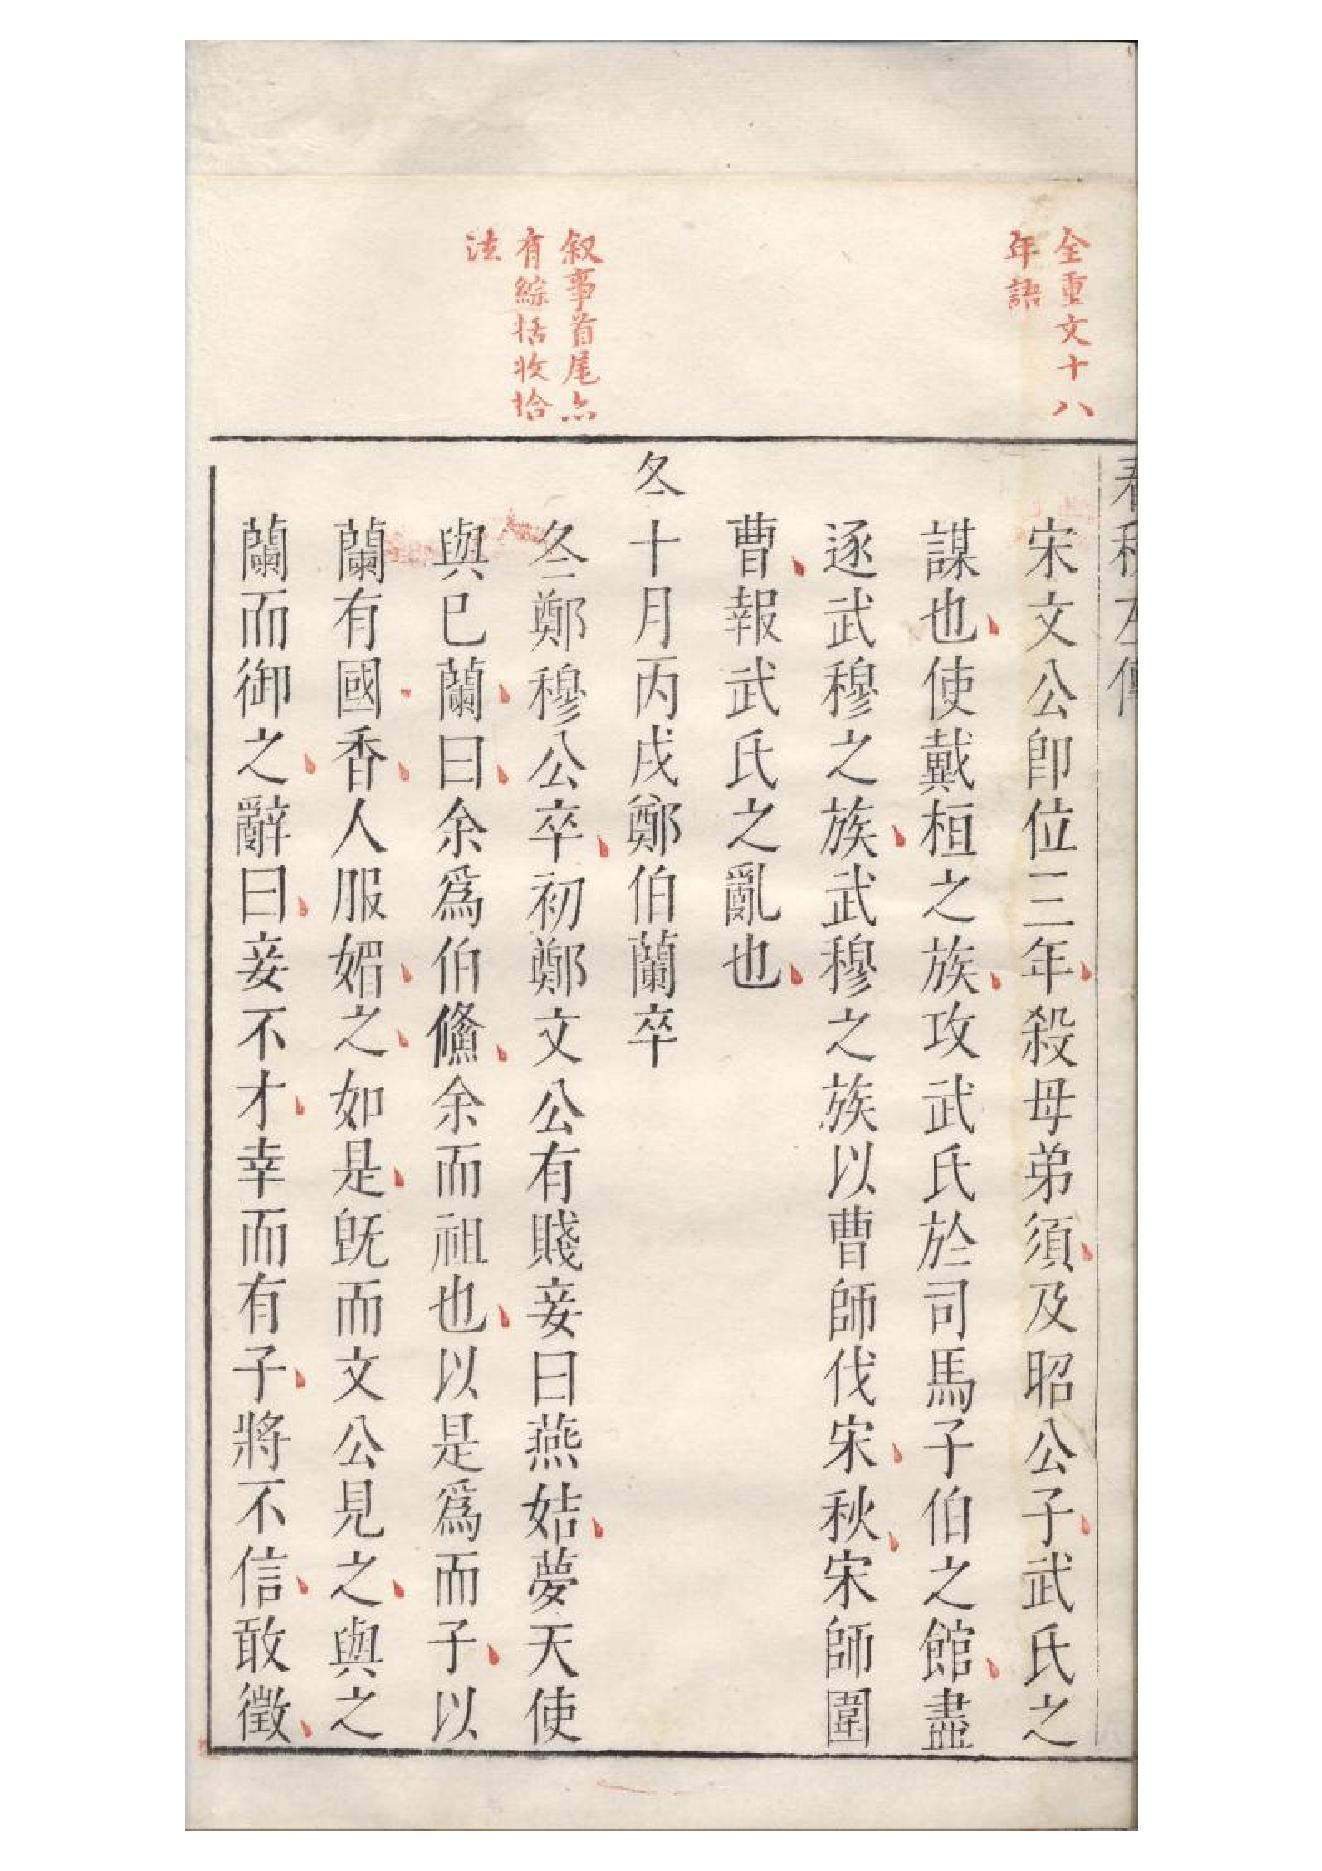 全重文十八
年語
叙事首尾亦
有綜括收拾
法
春秋左傳
宋文公卽位三年殺母弟須及昭公子武氏之
謀也使戴桓之族攻武氏於司馬子伯之館盡
逐武穆之族武穆之族以曹師伐宋秋宋師圍
曹報武氏之亂也
冬十月丙戌鄭伯蘭卒
冬鄭穆公卒初鄭文公有賤妾曰燕姞夢天使
與已蘭曰余爲伯鯈余而祖也以是爲而子以
蘭有國香人服媚之如是旣而文公見之與之
蘭而御之辭曰妾不才幸而有子將不信敢徵